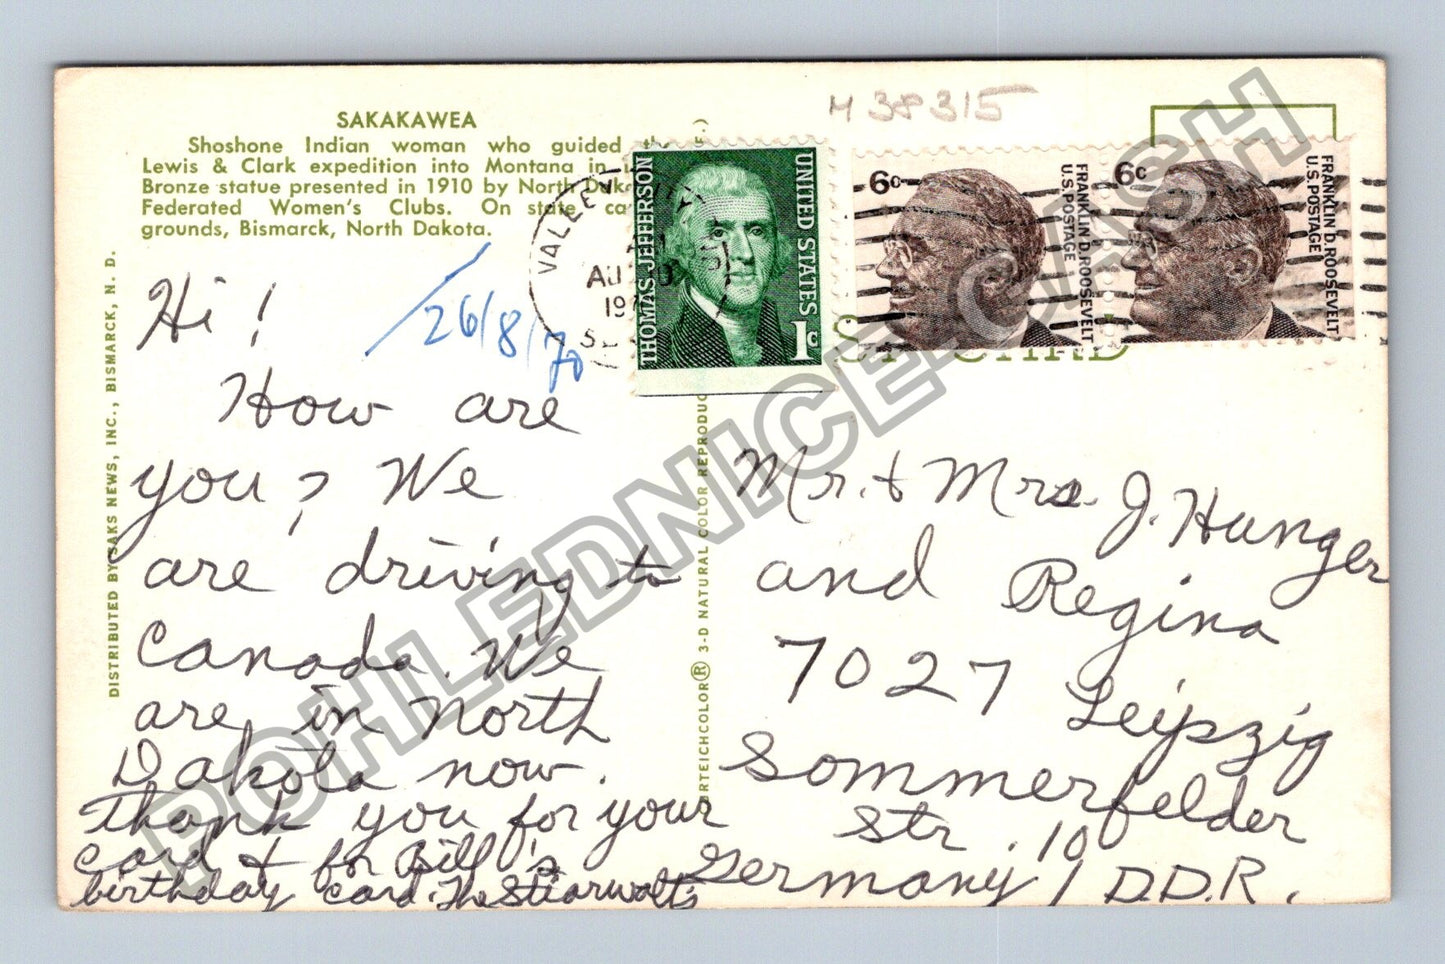 SAKAKAWEA
Shoshone Indian woman who guided the
Lewis & Clark expedition into Montana in
Bronze statue presented in 1910 by North
Federated Women's Clubs. On state
grounds, Bismarck, North Dakota.
DISTRIBUTED BY SAKS NEWS, INC., BISMARCK, N. D.
Hi!
26/8/70
How are
you? We
are driving to
Canada We
are in North
Dakota now.
Thank you for your
card & for Bill's
birthday card. The Stierwalts
M 38315
VALLEY CITY
AUG
THOMAS JEFFERSON
UNITED STATES
1c
6c
FRANKLIN D. ROOSEVELT
U.S. POSTAGE
6c
FRANKLIN D. ROOSEVELT
U.S. POSTAGE
CURTEICHCOLOR® 3-D NATURAL COLOR
Mr. + Mrs. J. Hunger
and Regina
7027 Leipzig
Sommerfelder
Str. 10
Germany / D.D.R.
POHLEDNICE-CASH